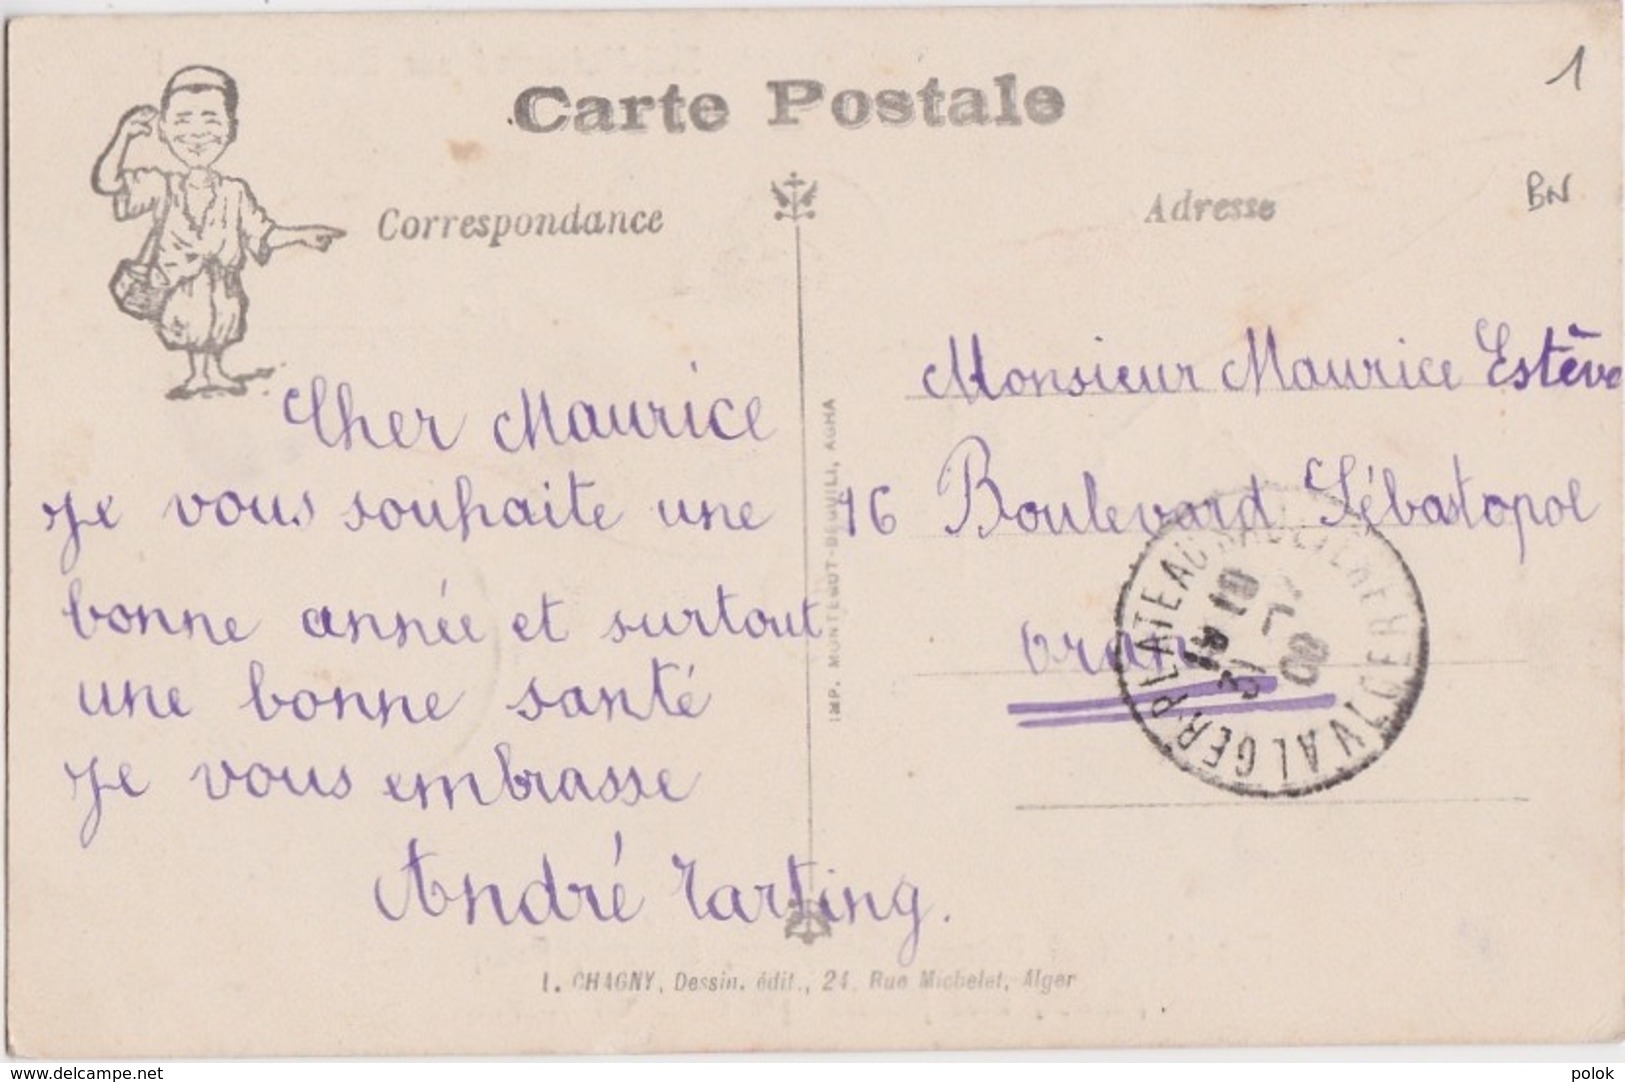 Carte Postale
1
BN
Correspondance
Adresse
Cher Maurice
Je vous souhaite une
bonne année et surtout
une bonne santé
Je vous embrasse
André Tarting.
Monsieur Maurice Estève
16 Boulevard Sébastopol
Oran
ALGER-PLATEAU ALGER
31
08
IMP. MONTÉGUT-DEGUILI, AGHA
CHAGNY, Dessin. édit., 24, Rue Michelet, Alger
www.delcampe.net
polok